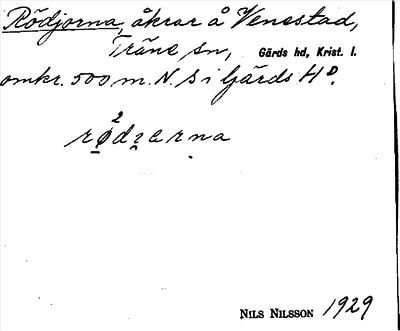 Rödjorna, åkrar å Venestad,
Träne sn, Gärds hd, Krist. l.
omkr. 500 m. N. S i Gärds Hd.
2
rødzɛrna
NILS NILSSON 1929